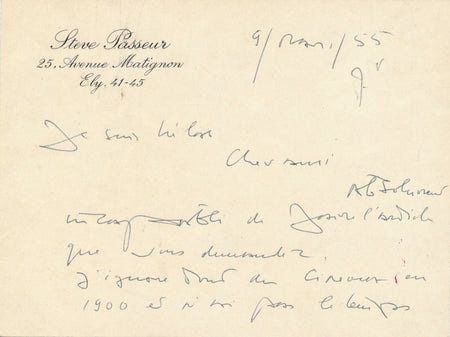 Steve Passeur
25, Avenue Matignon
Ely. 41-45
9/ /55
Je suis hélas
Cher ami
Absolument
incapable de l'article
que vous demandez.
J'ignore tout du Cinéma en
1900 et n'ai pas le temps